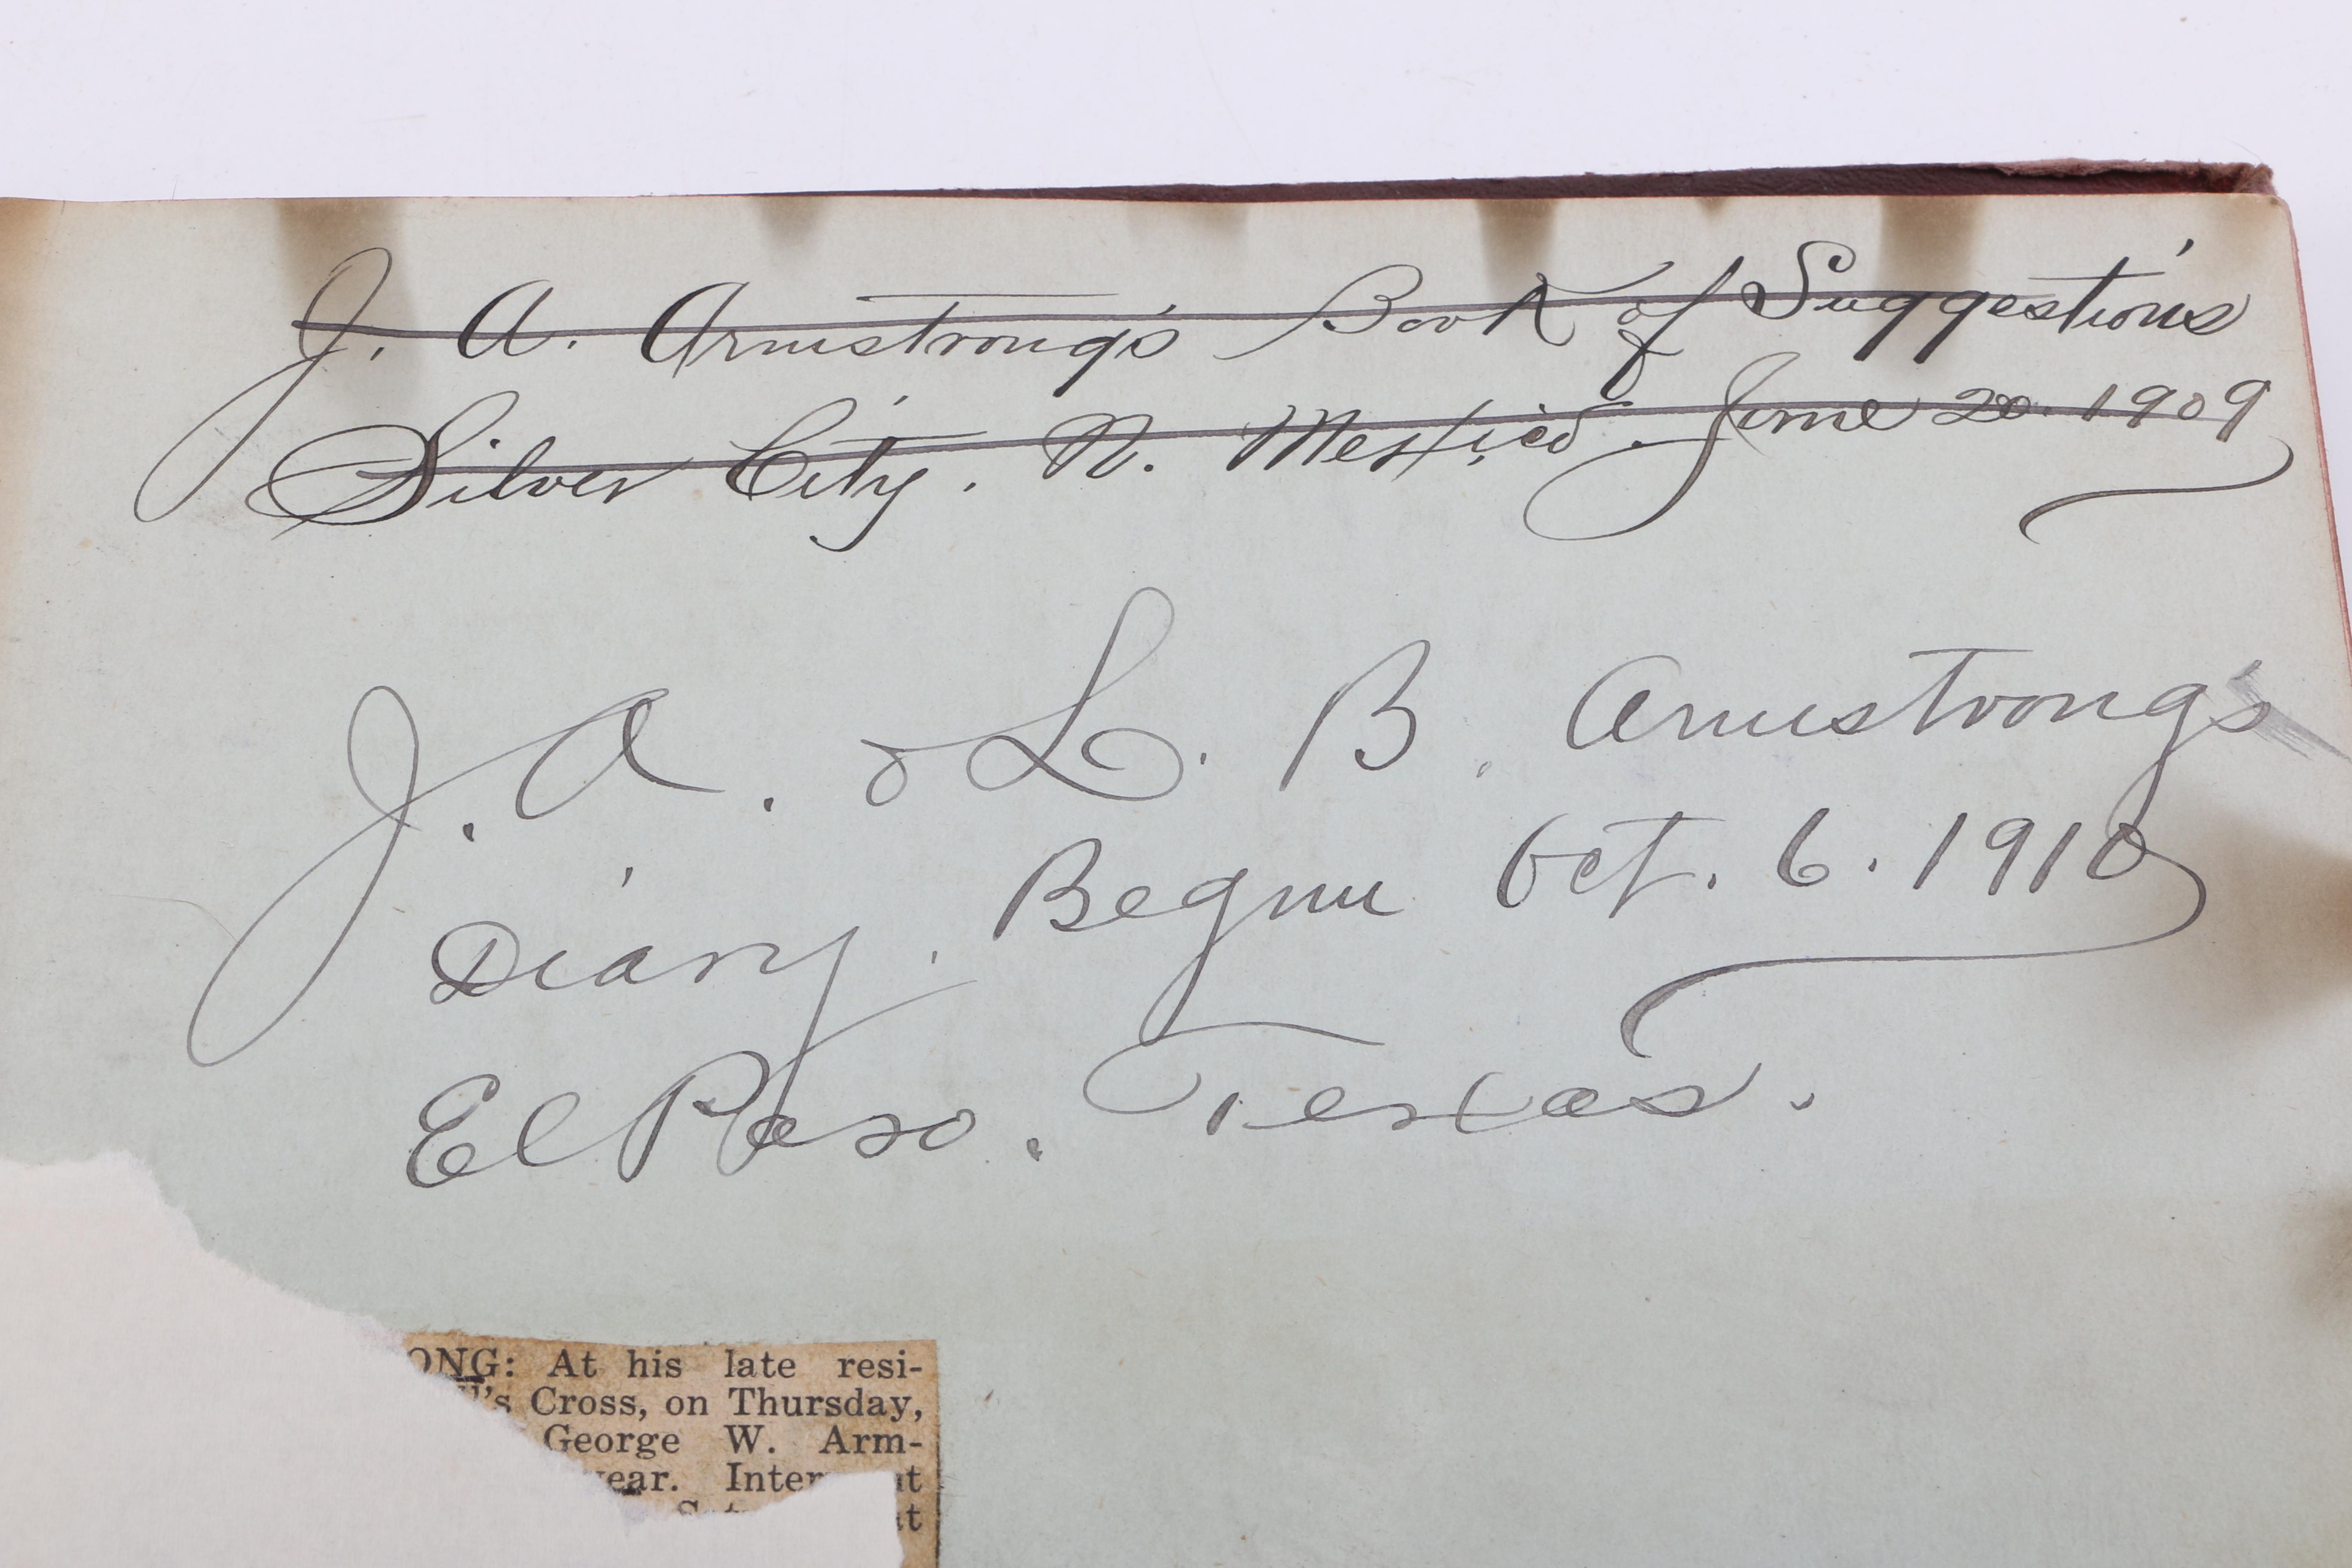 J. A. Armstrong's Book of Suggestions
Silver City. N. Mexico. June 20. 1909
J. A. & L. B. Armstrongs
Diary. Begun Oct. 6. 1910
El Paso. Texas.
ONG: At his late resi-
l's Cross, on Thursday,
George W. Arm-
year. Inter t
t